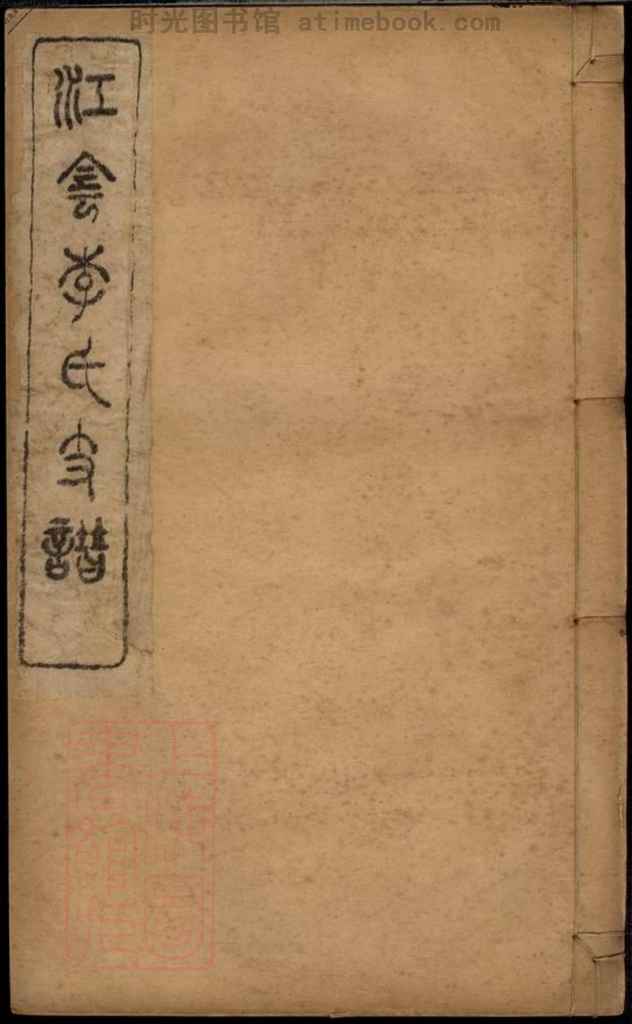 时光图书馆 atimebook.com
江侌李氏支譜